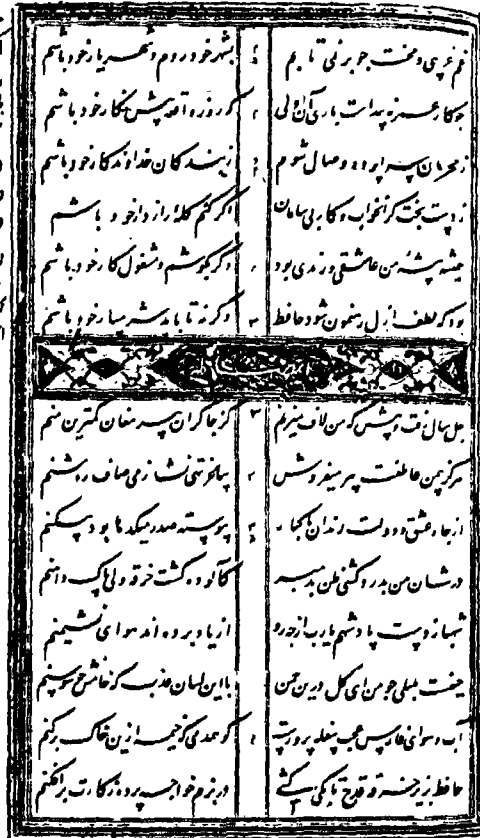 غم غریبی و محنت چو بر نمی تابم بشهر خود روم و شهریار خود باشم
چو کار عمر نه پیداست باری آن اولی که روز واقعه پیش نگار خود باشم
ز محرمان سراپرده وصال شوم ز بندگان خداوندگار خود باشم
ز دست بخت گران خواب و کار بی سامان اگر کنم گله راز دار خود باشم
همیشه پیشه من عاشقی و رندی بود دگر بکوشم و مشغول کار خود باشم
بود که لطف ازل رهنمون شود حافظ وگرنه تا بابد شرمسار خود باشم
چل سال رفت و بیش که من لاف میزنم کز چاکران پیر مغان کمترین منم
هرگز بیمن عاطفت پیر میفروش ساغر تهی نشد ز می صاف روشنم
از جاه عشق و دولت رندان پاکباز پیوسته صدر میکدها بود مسکنم
در شان من بدرد کشی ظن بد مبر کآلوده گشت خرقه ولی پاک دامنم
شهباز دست پادشهم یارب از چه رو از یاد برده اند هوای نشیمنم
حیفست بلبلی چو من ای گل درین چمن با این لسان عذب که خامش چو سوسنم
آب و هوای فارس عجب سفله پرورست کو همدمی که خیمه ازین خاک برکنم
حافظ بزیر خرقه قدح تا بکی کشی در بزم خواجه پرده ز کارت برافکنم